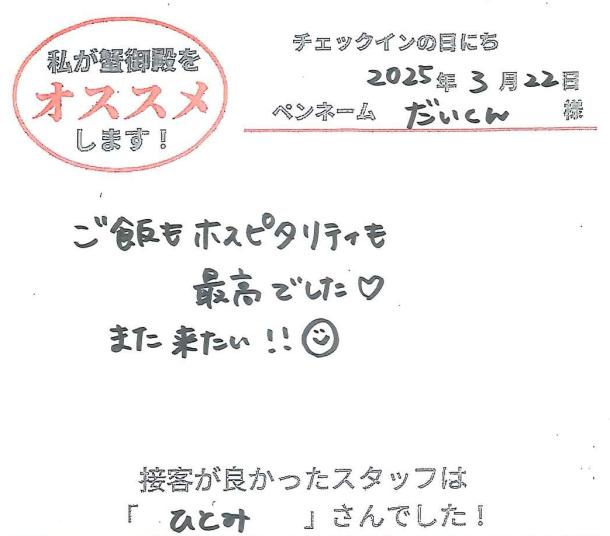 私が蟹御殿を
オススメ
します！
チェックインの日にち
2025年3月22日
ペンネーム だいくん 様
ご飯もホスピタリティも
最高でした♡
また来たい!!☺
接客が良かったスタッフは
「 ひとみ 」さんでした！